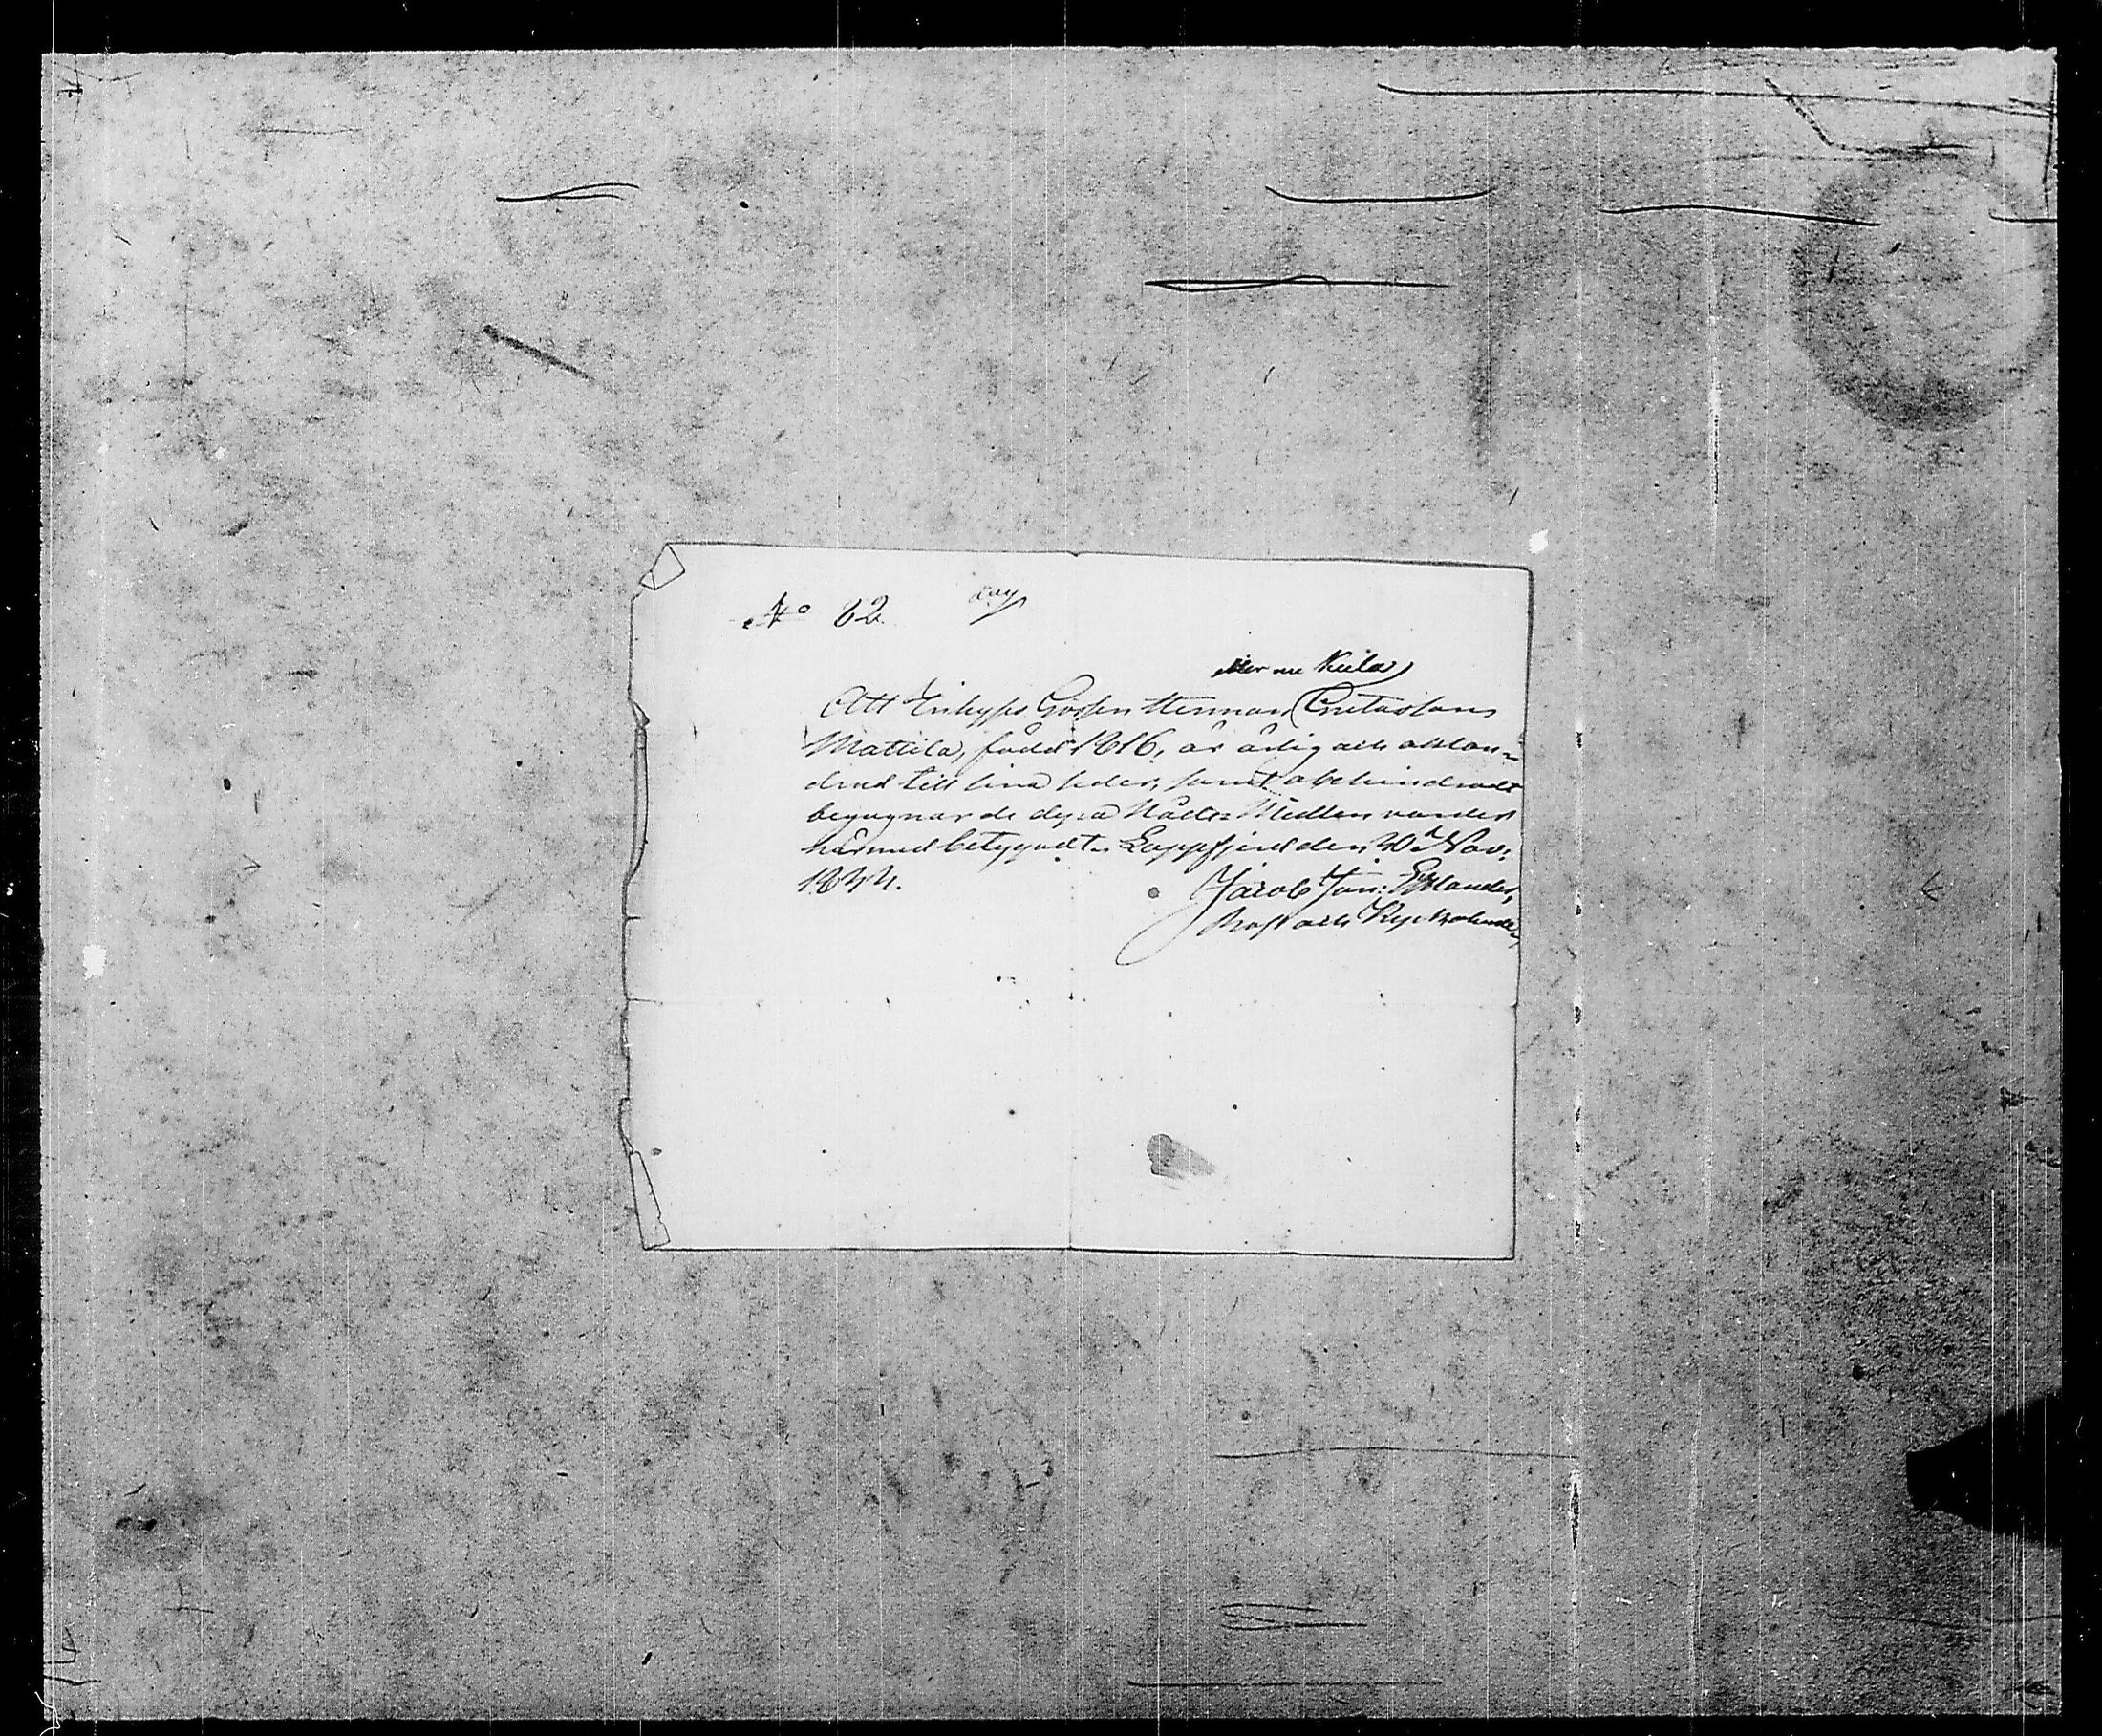 No 82.
Att Inhyses Gossen Herman Gustafsons
Mattila, född 1816, är ärlig och oklan-
drad till sina seder, samt obehindradt
begagnar de dyra Nådes Medlen varder
härmed betygadt. Lappfjerd den 30 Nov:
1834.
Jacob Jon: Estlander,
Prost och Kyrkoherde